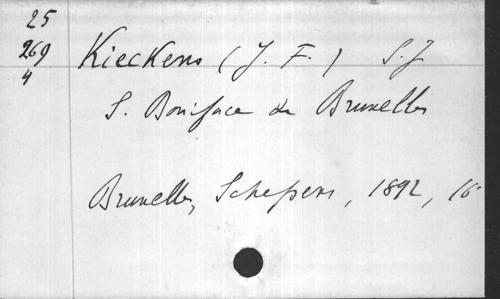 25
269
4
Kieckens (J. F.) S.J
S. Boniface de Bruxelles
Bruxelles, Schepens, 1892, 16°